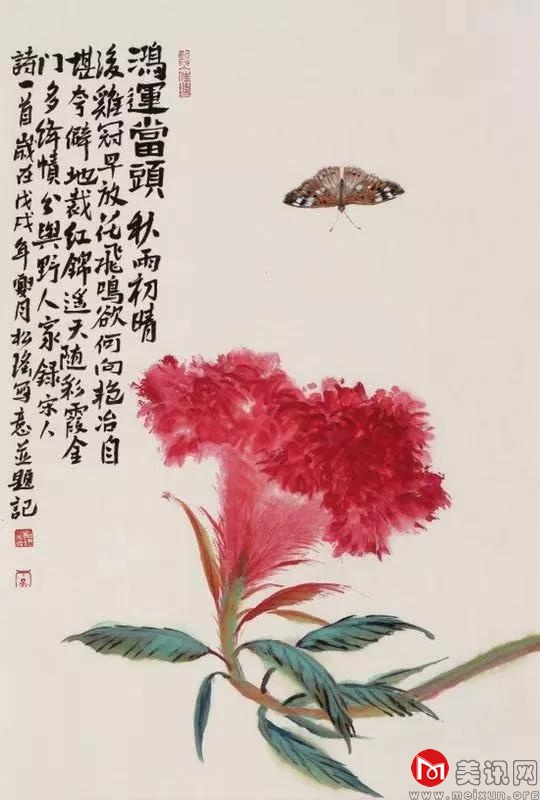 鴻運當頭 秋雨初晴
後雞冠早放花飛鳴欲何向艳冶自
堪夸僻地裁红錦遥天随彩霞金
门多绛幘分與野人家録宋人
詩一首歲在戊戌年 松瑤写意並題記
美讯网
www.meixun.org